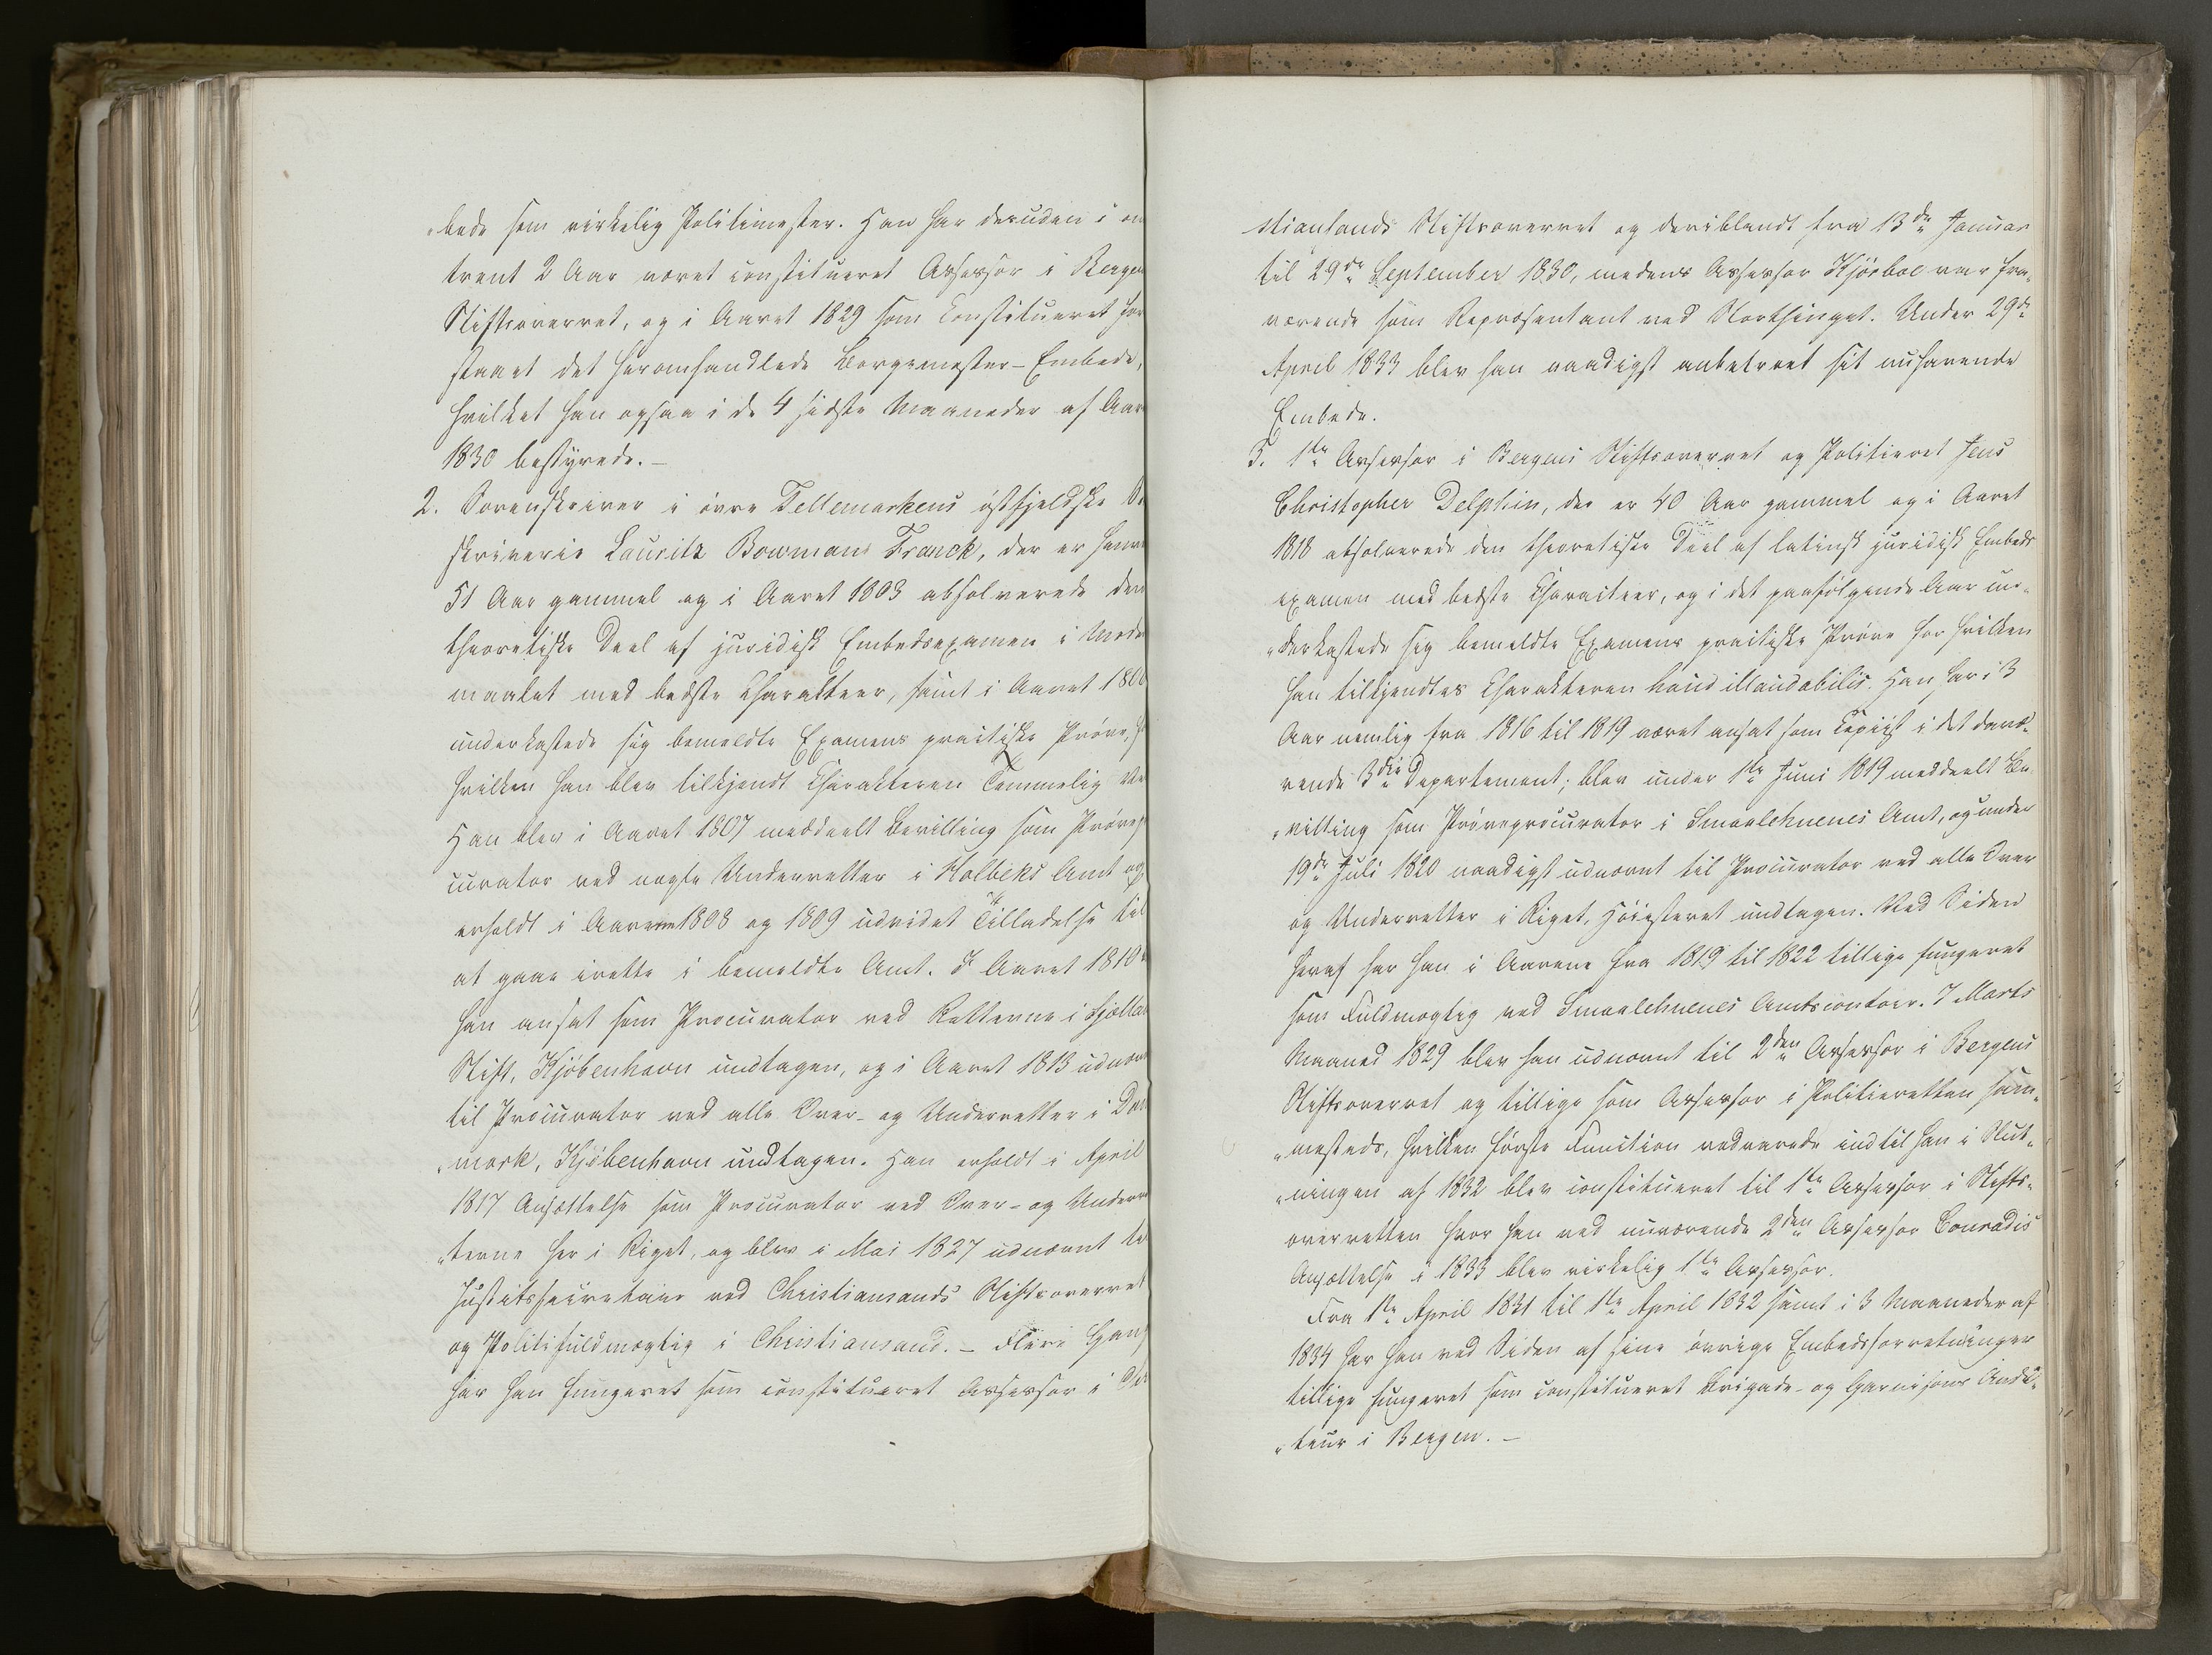 „bede som virkelig Politimester. Han har desuden i om
trent 2 Aar været constitueret Assessor i Bergen
Stiftsoverret, og i Aaret 1829 som Constitueret for
staaet det heromhandlede Borgemester-Embede,
hvilket han ogsaa i de 4 sidste Maaneder af Aar
1830 bestyrede. –
2. Sorenskriver i övre Tellemarkens östfjeldske
skriverie Lauritz Bowmans Franck, der er henved
51 Aar gammel og i Aaret 1803 absolverede den
theoretiske Deel af juridisk Embedsexamen i Moders
maalet med bedste Charakteer, samt i Aaret 180
underkastede sig bemeldte Examens practiske Pröve, for
hvilken han blev tilkjendt Charakteren Temmelig Vel
Han blev i Aaret 1807 meddeelt Bevilling som Prövepro
curator ved nogle Underretter i Holbeks Amt og
erholdt i Aarene 1808 og 1809 udvidet Tilladelse til
at gaae irette i bemeldte Amt. I Aaret 1810
han ansat som Procurator ved Retterne i Sjælla
Stift, Kjöbenhavn undtagen, og i Aaret 1813 udnævn
til Procurator ved alle Over- og Underretter i Dan
„mark, Kjöbenhavn undtagen. Han erholdt i April
1817 Ansættelse som Procurator ved Over- og Underret
„terne her i Riget, og blev i Mai 1827 udnævnt til
Justitssecretaire ved Christiansands Stiftsoverret
og Politifuldmægtig i Christiansand. – Flere Gang
har han fungeret som constitueret Assessor i Chri
stiansands Stiftsoverret og deriblandt fra 13de Januar
til 29de September 1830, medens Assessor Kjörboe var fra„
værende som Repræsentant ved Storthinget. Under 29de
April 1833 blev han naadigst anbetroet sit nuhavende
Embede.
3. 1ste Assessor i Bergens Stiftsoverret og Politieret Jens
Christopher Delphin, der er 40 Aar gammel og i Aaret
1818 absolverede den theoretiske Deel af latinsk juridisk Embeds
examen med bedste Characteer, og i det paafölgende Aar un„
„derkastede sig bemeldte Examens practiske Pröve for hvilken
han tilkjendtes Charakteren haud illaudabilis. Han har i 3
Aar nemlig fra 1816 til 1819 været ansat som Copiist i det davæ„
rende 3die Departement; blev under 1ste Juni 1819 meddeelt Be„
„villing som Pröveprocurator i Smaalehnenes Amt, og under
19de Juli 1820 naadigst udnævnt til Procurator ved alle Over
og Underretter i Riget, Höiesteret undtagen. Ved Siden
heraf har han i Aarene fra 1819 til 1822 tillige fungeret
som Fuldmægtig ved Smaalehnenes Amtscontoir. I Marts
Maaned 1829 blev han udnævnt til 2den Assessor i Bergens
Stiftsoverret og tillige som Assessor i Politieretten sam„
„mesteds, hvilken förste Function vedvarede indtil han i Slut„
„ningen af 1832 blev constitueret til 1ste Assessor i Stifts„
overretten hvor han ved nuværende 2den Assessor Conradis
Ansættelse i 1833 blev virkelig 1ste Assessor.
Fra 1ste April 1831 til 1ste April 1832 samt i 3 Maaneder af
1834 har han ved Siden af sine övrige Embedsforretninger
tillige fungeret som constitueret Brigade- og Garnisons Audi„
„teur i Bergen. –